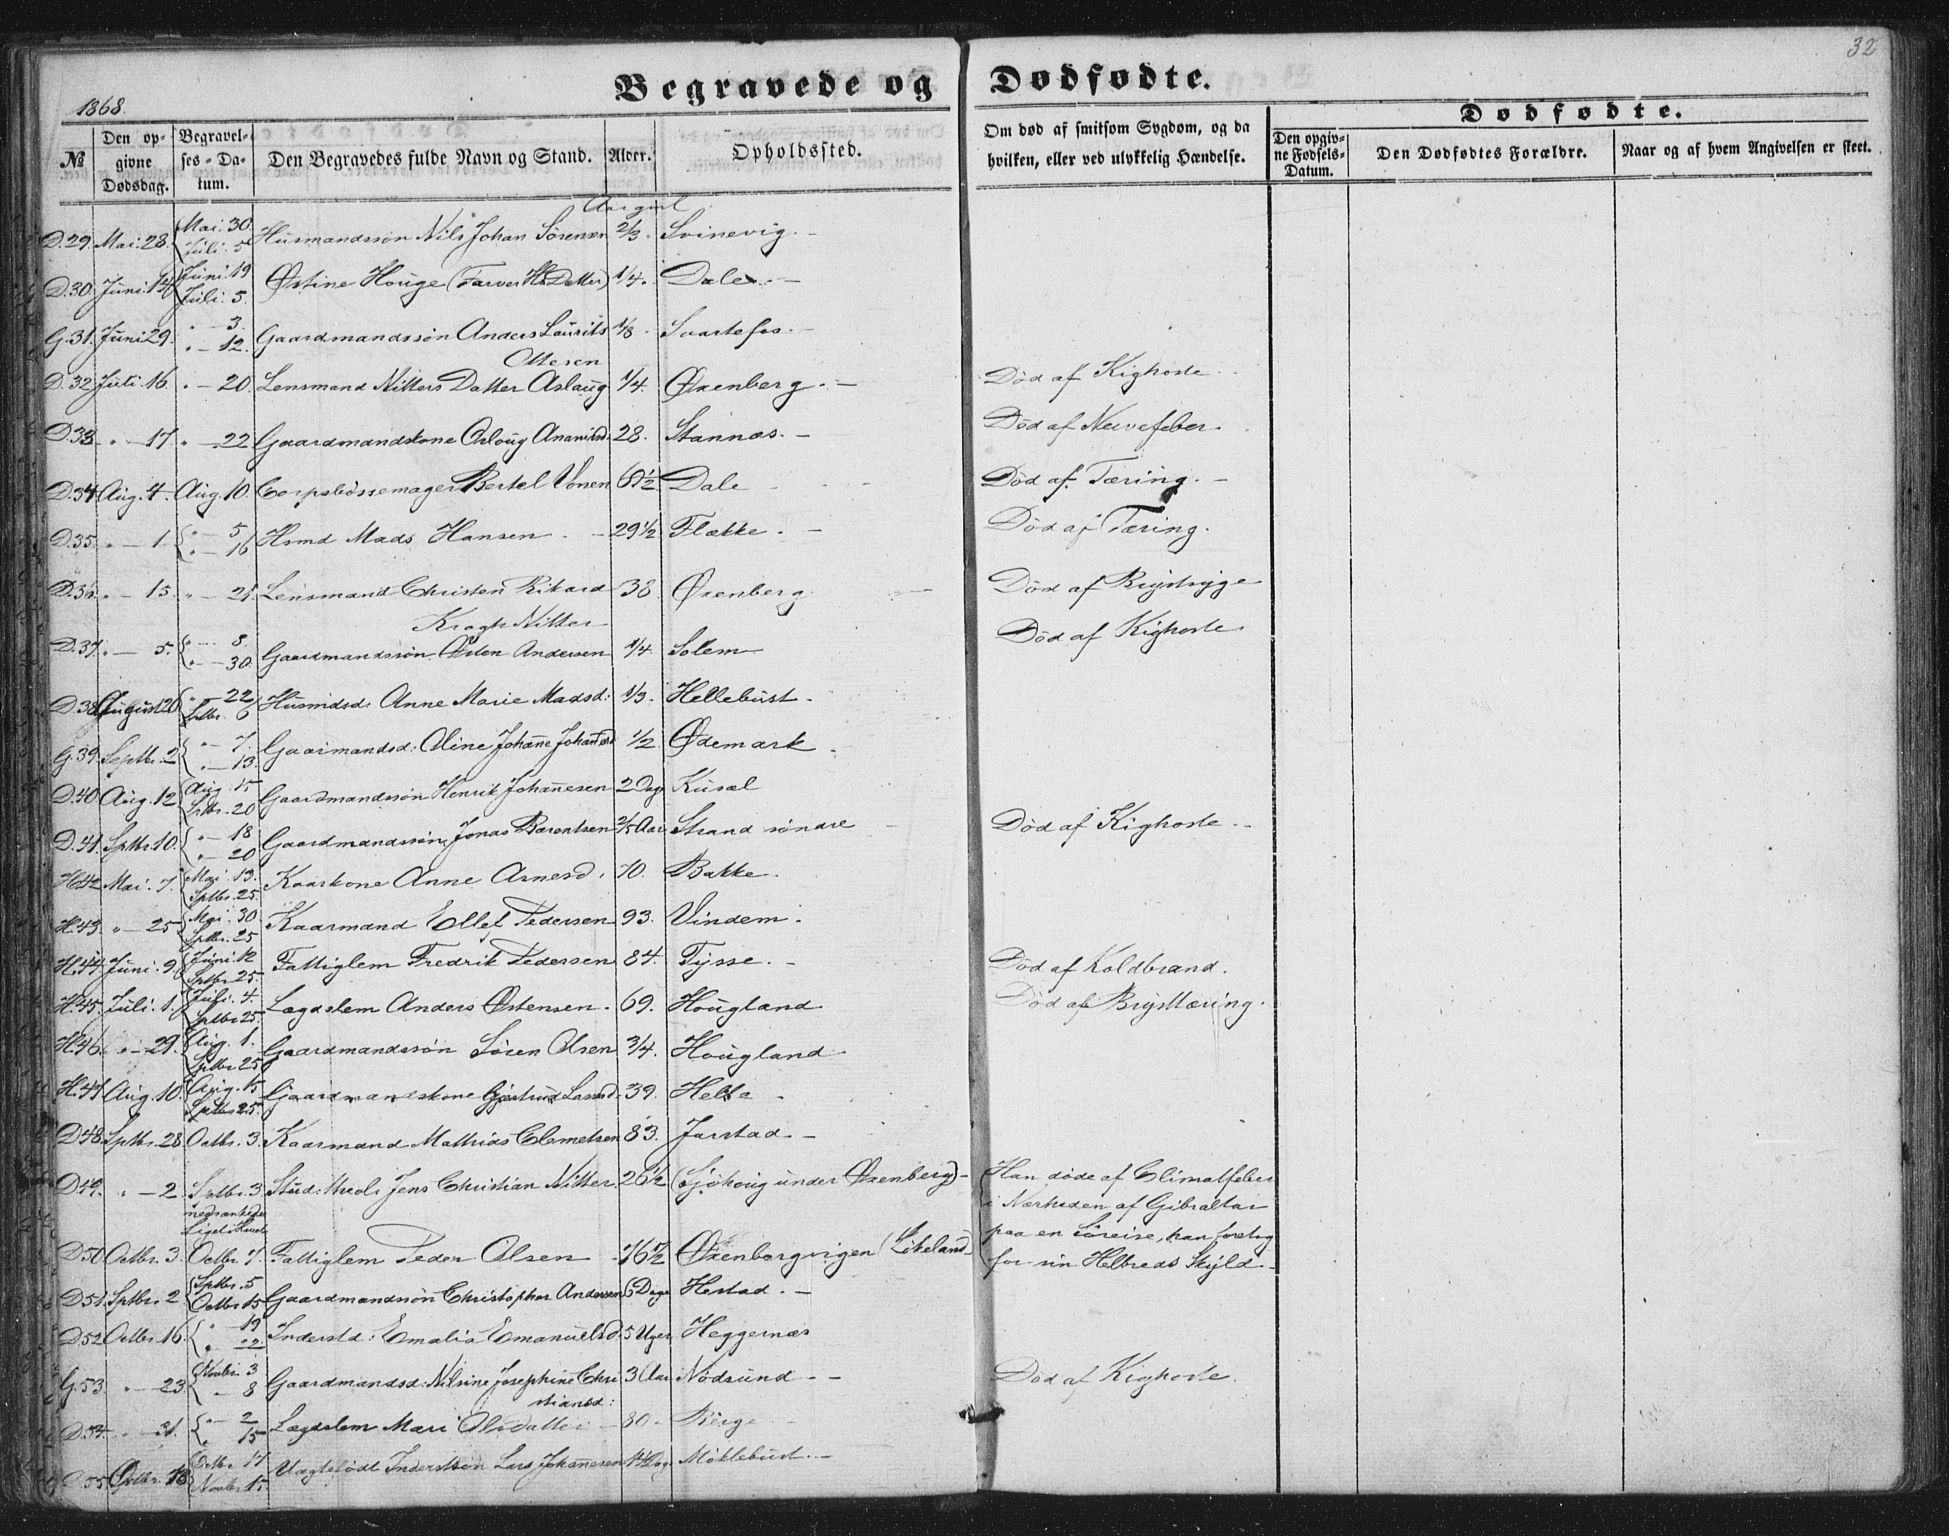 32
Begravede og Dødfødte.
1868.
Dødfødte.
№
Den opgivne Dødsdag.
Begravelses-Datum.
Den Begravedes fulde Navn og Stand.
Alder.
Opholdssted.
Om død af smitsom Sygdom, og da hvilken, eller ved ulykkelig Hændelse.
Den opgivne Fødsels-Datum.
Den Dødfødtes Forældre.
Naar og af hvem Angivelsen er skeet.
Aar gml
D.29. Mai 28. Mai 30. Juli 5 Husmandssøn Nils Johan Sørensen 2/3. Svinevig.
D.30. Juni 14 Juni 19 Juli 5. Østine Houge (Farver H's Datter) 1/4. Dale.
G.31. Juni 29. " — 3. " — 12. Gaardmandssøn Anders Laurits Ottesen 1/8. Svartefos.
D.32. Juli 16. " — 20. Lensmand Nitters Datter Aslaug 1/4. Øxenberg. Død af Kighoste.
D.33. " — 17. " — 22 Gaardmandskone Oloug 28. Stannæs. Død af Nervefeber.
D.34 Aug. 4. Aug. 10. Corpsbøssemager Bertel Vonen 61½ Dale Død af Tæring.
D.35. " — 1. " — 5. " — 16 Hsmd Mads Hansen 29½ Flække. Død af Tæring.
D.36. " — 15. " — 21. Lensmand Christen Rikard Kragh Nitter 38. Øxenberg Død af Brystsyge
D.37. " — 5. " — 8. " — 30. Gaardmandssøn Østen Andersen 1/4. Solem Død af Kighoste
D.38. August 20 " — 22 Sptbr. 6 Husmdsd: Anne Marie Madsd: 1/3. Hellebust.
G.39. Septbr. 2 " — 7. " — 13. Gaarmandsd: Oline Johanne 1/2 Ødemark.
D.40. Aug. 12 Aug. 15 Sptbr. 20 Gaardmandssøn Henrik Johannesen 2 Dage Kusæl
D.41. Sptbr. 10. " — 18 " — 20 Gaardmandssøn Jonas Barentsen 2/5 Aar Strand søndre Død af Kighoste.
H.42. Mai 7. Mai 13. Sptbr. 25. Kaarkone Anne Arnesd. 70. Bakke.
H.43. " — 25 Mai 30 Sptbr. 25 Kaarmand Ellef Pedersen 93. Vindem.
H.44. Juni 9. Juni 12 Sptbr. 25. Fattiglem Fredrik Pedersen 84. Tysse. Død af Koldbrand.
H.45. Juli 1. Juli 4. Sptbr 25. Lægdslem Anders Østensen. 69. Hougland Død af Brysttæring.
H.46. " — 29. Aug. 1. Sptbr 25 Gaardmandssøn Søren Olsen 3/4. Hougland
H.47. Aug. 10. Aug. 15 Sptbr 25. Gaardmandskone Gjertrud Larsd. 39. Hella
D.48. Sptbr. 28 Octbr. 3. Kaarmand Mathias Clemetsen 83. Jarstad.
D.49. " — 2. Sptbr. 3 nedsænkedes Liget i Havet Stud: theol: Jens Christian Nitter. 26½ (Sjøhoug under Øxenberg) Han døde af Climatfeber i Nærheden af Gibraltar paa en Søreise, han foretog for sin Helbreds Skyld.
D.50 Octbr. 3. Octbr 7. Fattiglem Peder Olsen 76½ Øxenbergvigen
D.51. Sptbr. 2 Sptbr. 5 Octbr 15 Gaardmandssøn Christopher Andersen 6 Dage Herstad.
D.52 Octbr. 16. " 19 " 22 Inderstd: Emalia Emanuelsd. 5 Uger Heggernæs
G.53. " — 23. Novbr. 3 " — 8 Gaardmandsd: Nilsine Josephine Christiansd: 3 Aar Nødsund Død af Kighoste.
D.54. " 31. " — 2 " 15 Lægdslem Mari Olsdatter 80. Berge
D.55. Octbr. 13. Octbr 17 Novbr. 15. Uægtefødt Inderstsøn Lars Johannesen 14 Dage Møklebust.